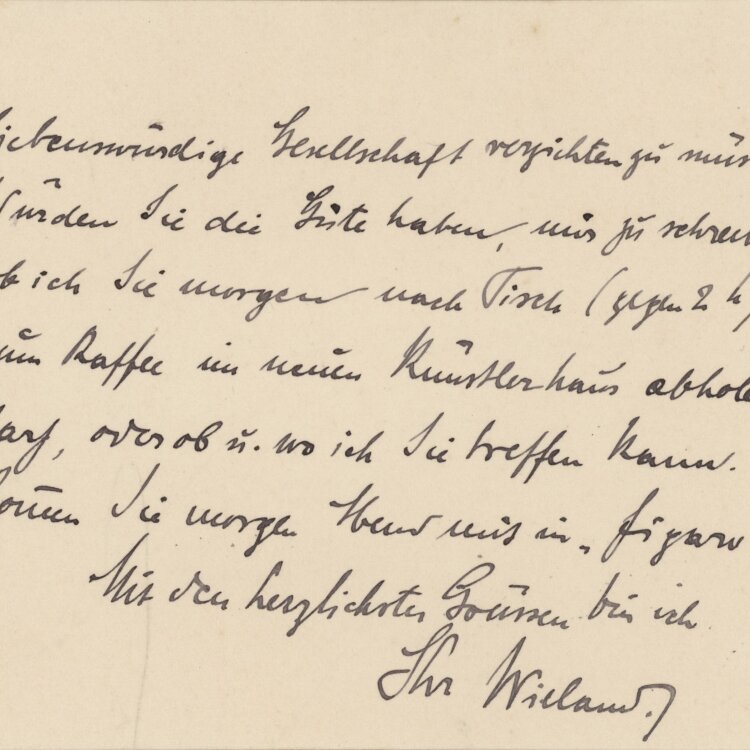 liebenswürdige Gesellschaft verzichten zu müs
Würden Sie die Güte haben, mir zu schrei
ob ich Sie morgen nach Tisch (gegen 2 h)
zum Kaffee im neuen Künstlerhaus abhole
darf, oder ob u. wo ich Sie treffen kann.
Sie morgen Abend mit in „Figaro
Mit den herzlichsten Grüssen bin ich
Ihr Wieland.